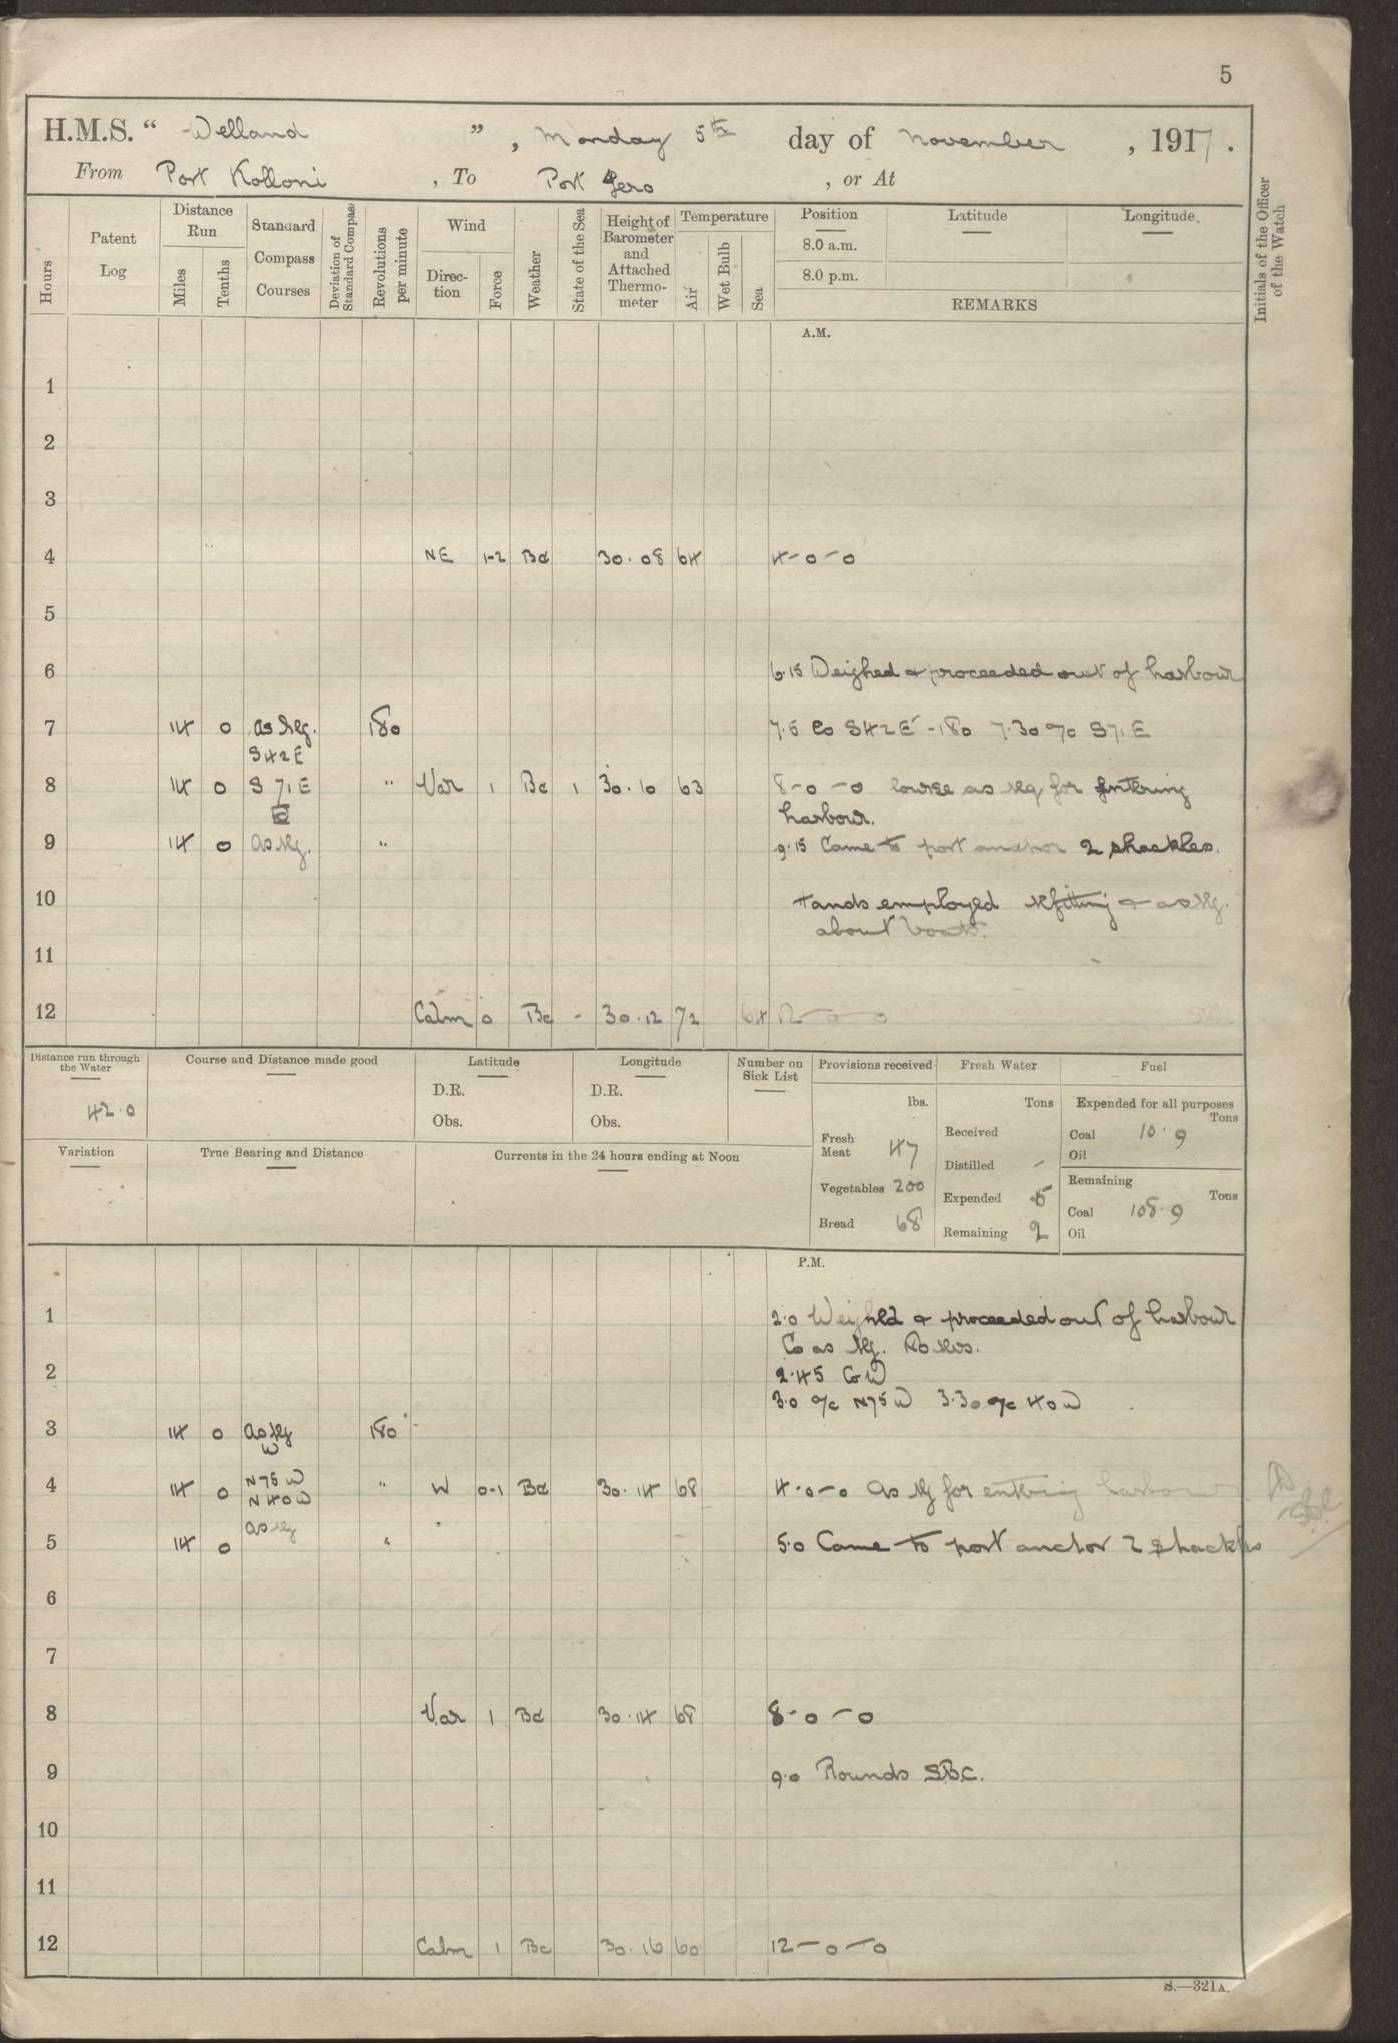 5
H.M.S. "Welland", Monday 5th day of November, 1917.
From Port Kolloni, To Port Jero, or At
Hours
Patent Log
Distance Run
Miles
Tenths
Standard Compass Courses
Deviation of Standard Compass
Revolutions per minute
Wind
Direction
Force
Weather
State of the Sea
Height of Barometer and Attached Thermometer
Temperature
Air
Wet Bulb
Sea
Position
Latitude
Longitude.
8.0 a.m.
8.0 p.m.
REMARKS
Initials of the Officer of the Watch
A.M.
1
2
3
4 NE 1-2 Bc 30.08 64 4-0-0
5
6 6.15 Weighed & proceeded out of harbour
7 14 0 as req. 180 7.5 Co S42E - 180 7.30 a/c S71E
S42E
8 14 0 S 71 E " Var 1 Bc 1 30.10 63 8-0-0 course as req for entering
harbour.
9 14 0 as req. " 9.15 Came to port anchor 2 shackles.
10 Hands employed refitting & as req.
about boats.
11
12 Calm 0 Bc - 30.12 72 64 12-0-0
Distance run through the Water
42.0
Course and Distance made good
Latitude
D.R.
Obs.
Longitude
D.R.
Obs.
Number on Sick List
Provisions received
lbs.
Fresh Meat 47
Vegetables 200
Bread 68
Fresh Water
Tons
Received
Distilled -
Expended .5
Remaining 2
Fuel
Expended for all purposes
Tons
Coal 10.9
Oil
Remaining
Tons
Coal 108.9
Oil
Variation
True Bearing and Distance
Currents in the 24 hours ending at Noon
P.M.
1 2.0 Weighed & proceeded out of harbour
Co as req.
2 2.45 Co W
3.0 a/c N75W 3.30 a/c 40W
3 14 0 as req 180
W
4 14 0 N75W " W 0-1 Bc 30.14 68 4.0-0 as req for entering harbour
N40W
as req
5 14 0 " 5.0 Came to port anchor 2 shackles
6
7
8 Var 1 Bc 30.14 68 8-0-0
9 9.0 Rounds S.B.C.
10
11
12 Calm 1 Bc 30.16 60 12-0-0
S.—321A.